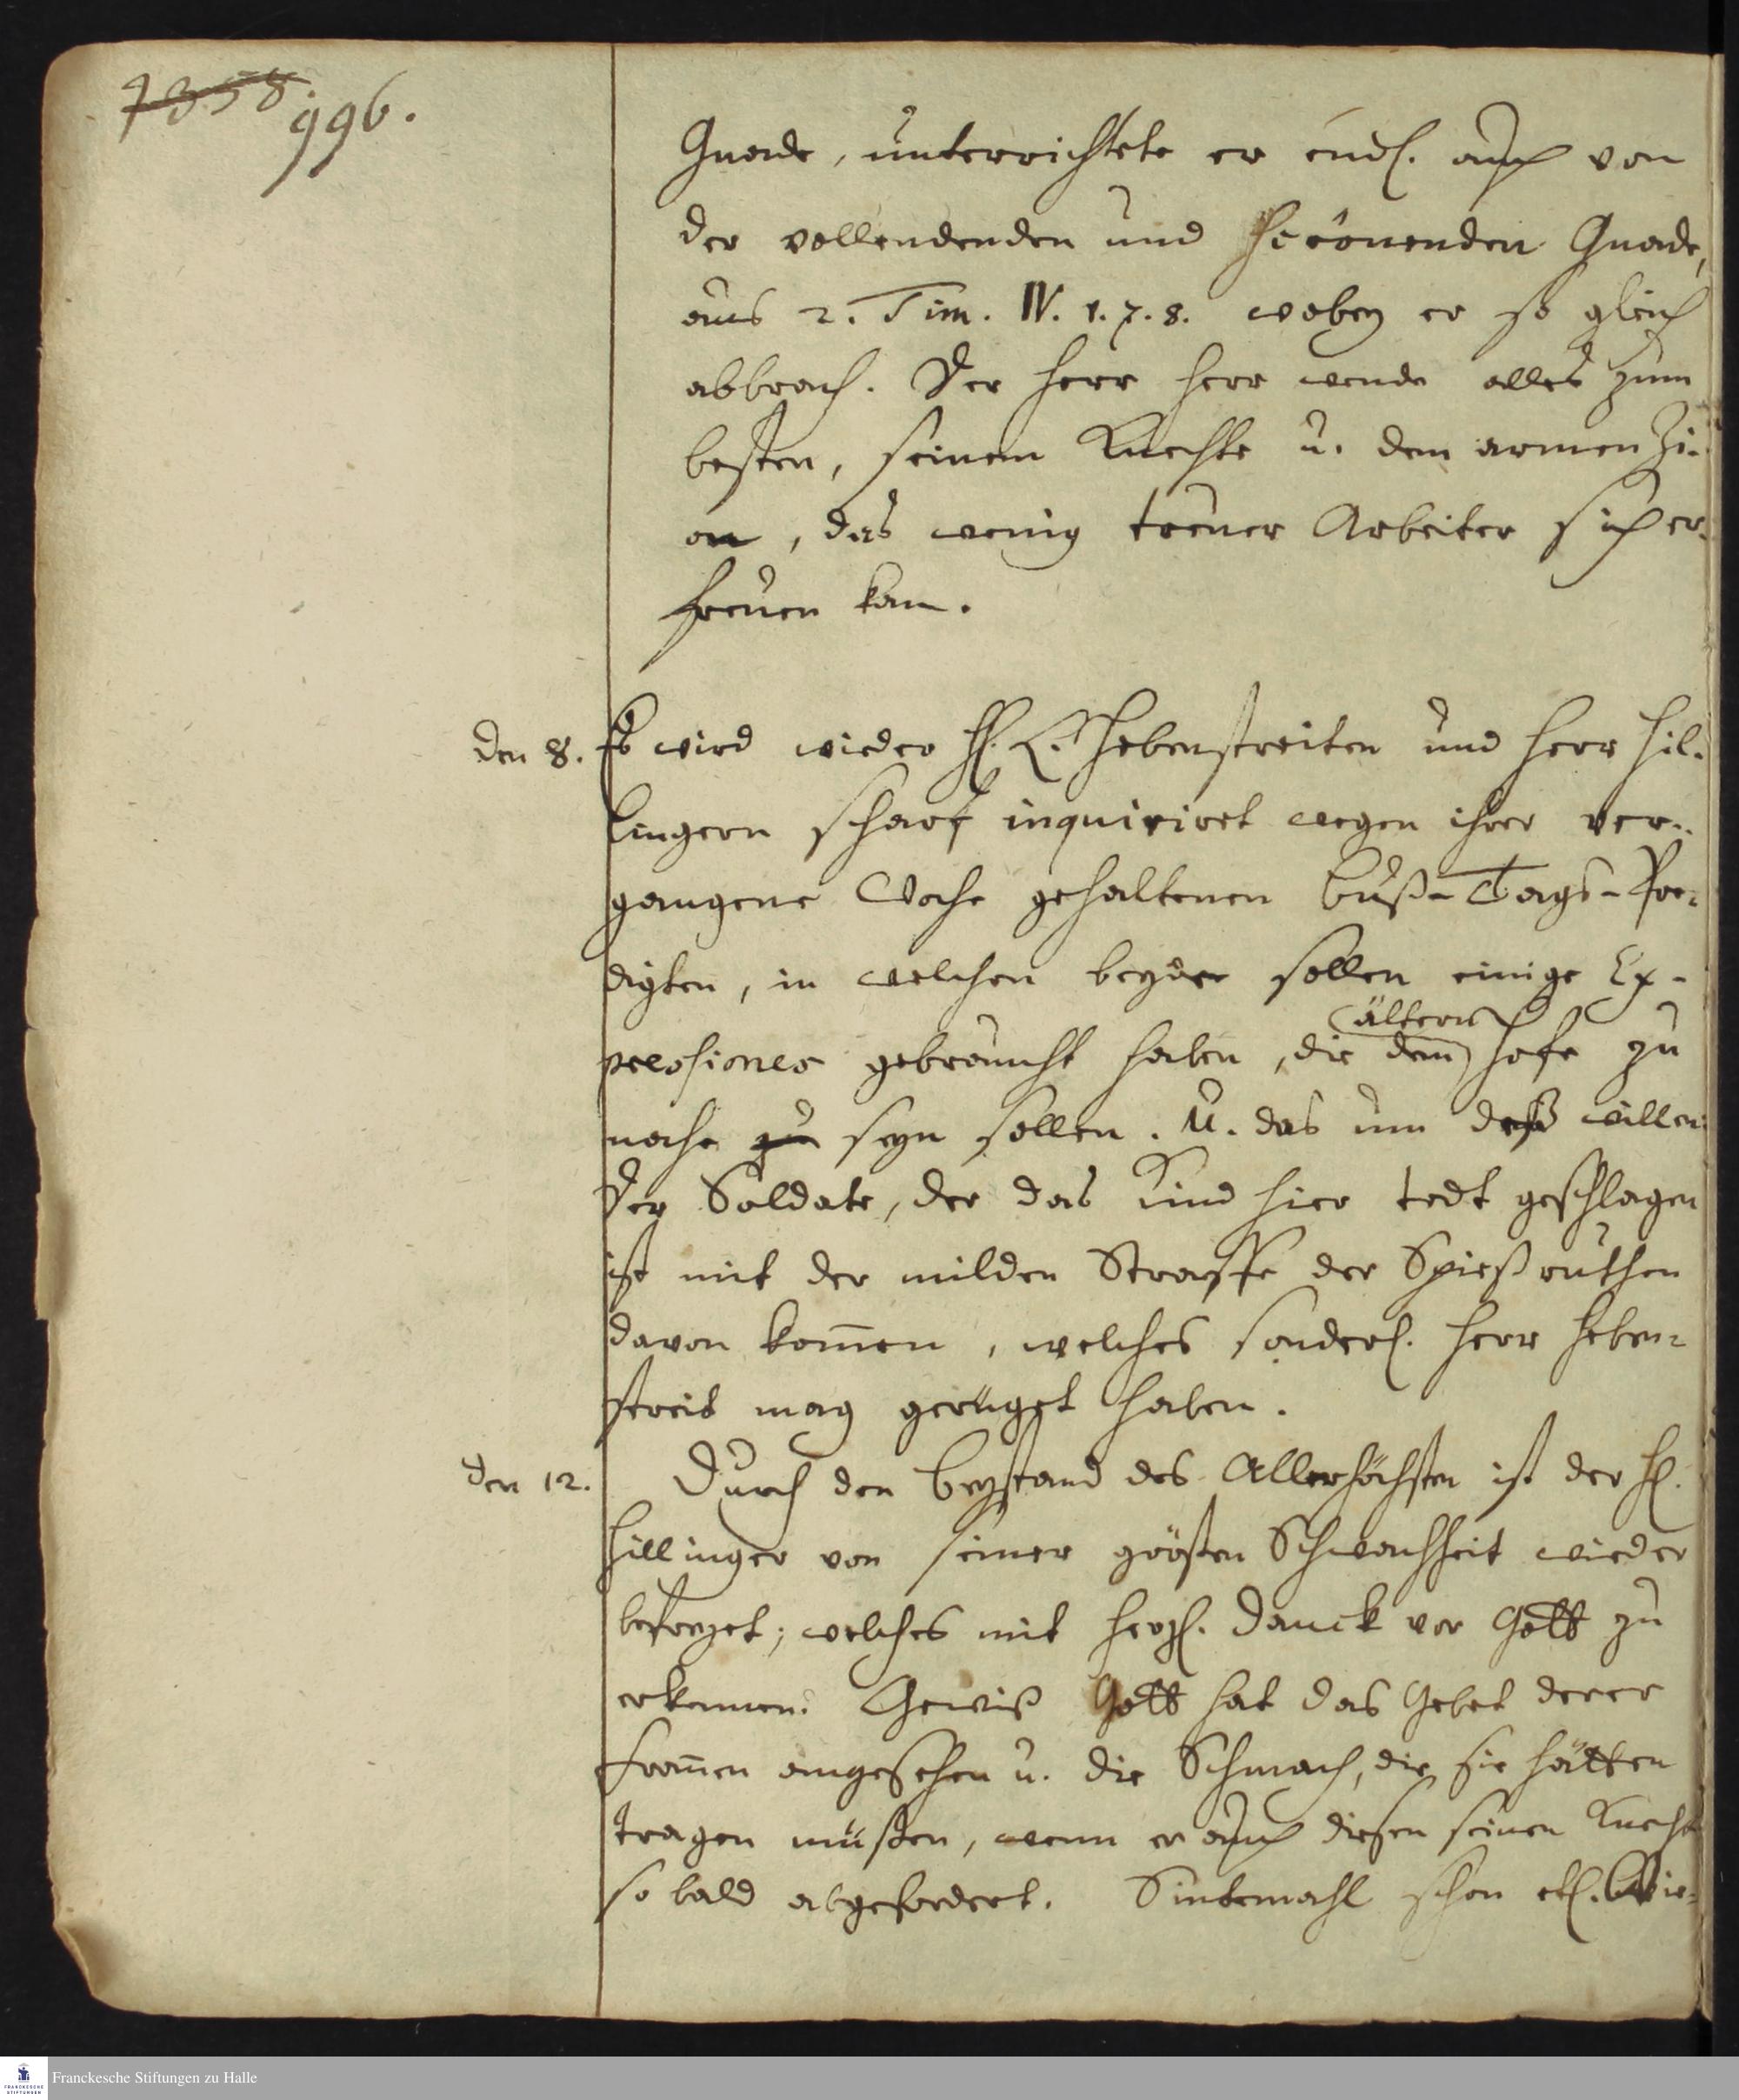 7358.
996.
Gnade, unterrichtete er endl. auch von
der vollendenden und Crönenden Gnade,
aus 2. Tim. IV. 1. 7. 8. wobey er so gleich
abbrach. Der Herr Herr wende alles zum
besten, seinem Knechte u. dem armen Zi-
on, das wenig treuer Arbeiter sich er-
freuen kan.
den 8. Es wird wieder H. L. Hebenstreiten und Herr Hil-
lingern scharf inquiriret wegen ihrer ver-
gangene Woche gehaltenen Buß-Tags-Pre-
digten, in welchen beyde sollen einige Ex-
pressiones gebraucht haben, die dem ältern Hofe zu
nahe zu seyn sollen. U. das um deß willen
Der Soldate, der das Kind hier todt geschlagen
ist mit der milden Straffe der Spießruthen
davon kom̄en, welches sonderl. Herr Heben-
streit mag gerüget haben.
den 12. Durch den Beystand des Allerhöchsten ist der H.
Hillinger von seiner größten Schwachheit wieder
befreyet; welches mit herzl. Danck vor Gott zu
erkennen. Gewiß Gott hat das Gebet derer
From̄en angesehen u. die Schmach, die sie hätten
tragen müßen, wenn er auch diesen seinen Knecht
so bald abgefordert. Sintemahl schon etl. Wie-
Franckesche Stiftungen zu Halle
FRANCKESCHE
STIFTUNGEN